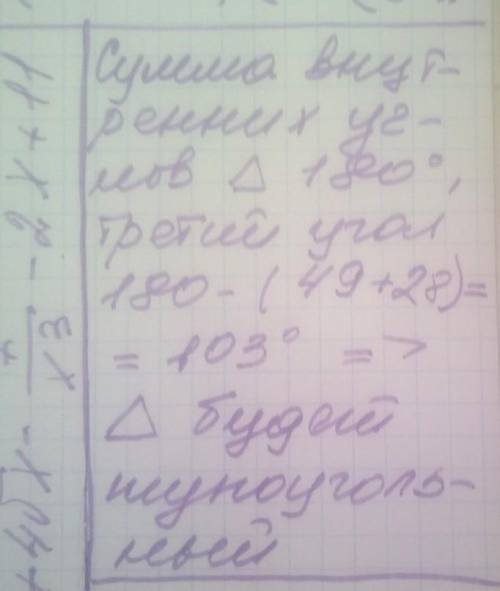 Сумма внут-
ренних уг-
лов △ 180°,
третий угол
180-(49+28)=
= 103° =>
△ будет
тупоуголь-
ный
-2x+11
x³